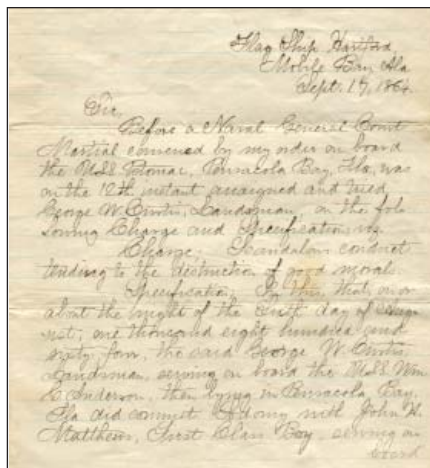 Flag Ship Hartford,
Mobile Bay, Ala
Sept. 17, 1864.
Sir,
Before a Naval General Court
Martial convened by my order on board
the U.S.S. Potomac, Pensacola Bay, Fla, was
on the 12th instant arraigned and tried
George W. Curtis, Landsman, on the fol-
lowing Charge and Specification, viz
Charge. Scandalous conduct
tending to the destruction of good morals
Specification; In this, that on or
about the night of the sixth day of Augu
ust, one thousand eight hundred and
sixty four, the said George W. Curtis,
Landsman, serving on board the U.S.S. Wm
G. Anderson, then lying in Pensacola Bay,
Fla did commit Sodomy with John H.
Matthews, First Class Boy, serving on
board